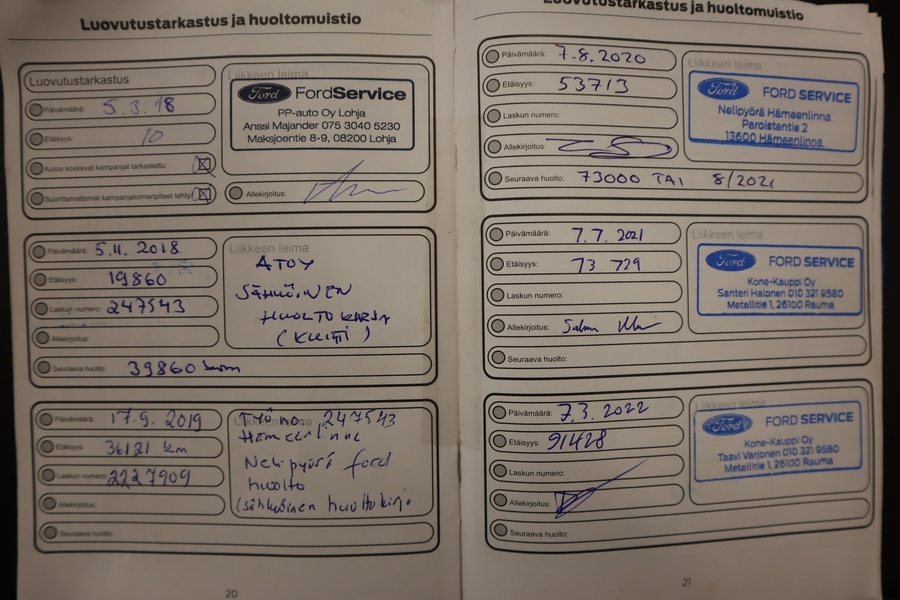 Luovutustarkastus ja huoltomuistio
Luovutustarkastus
Päivämäärä: 5.3.18
Etäisyys: 10
Autoa koskevat kampanjat tarkastettu:
Suorittamattomat kampanjatoimenpiteet tehty:
Liikkeen leima
Ford FordService
PP-auto Oy Lohja
Anssi Majander 075 3040 5230
Maksjoentie 8-9, 08200 Lohja
Allekirjoitus:
Päivämäärä: 5.11.2018
Etäisyys: 19860
Laskun numero: 247543
Allekirjoitus:
Liikkeen leima
ATOY
SÄHKÖINEN
HUOLTOKIRJA
(KUITTI)
Seuraava huolto: 39860
Päivämäärä: 17.9.2019
Etäisyys: 36121 km
Laskun numero: 2227909
Allekirjoitus:
Liikkeen leima
Työ no. 247543
Hämeenlinna
Nelipyörä ford
huolto
(sähköinen huoltokirja
Seuraava huolto:
20
Luovutustarkastus ja huoltomuistio
Päivämäärä: 7.8.2020
Etäisyys: 53713
Laskun numero:
Allekirjoitus:
Liikkeen leima
Ford FORD SERVICE
Nelipyörä Hämeenlinna
Paroistentie 2
13600 Hämeenlinna
Seuraava huolto: 73000 TAI 8/2021
Päivämäärä: 7.7.2021
Etäisyys: 73 729
Laskun numero:
Allekirjoitus:
Liikkeen leima
Ford FORD SERVICE
Kone-Kauppi Oy
Santeri Halonen 010 321 9580
Metallitie 1, 26100 Rauma
Seuraava huolto:
Päivämäärä: 7.3.2022
Etäisyys: 91428
Laskun numero:
Allekirjoitus:
Liikkeen leima
Ford FORD SERVICE
Kone-Kauppi Oy
Taavi Varjonen 010 321 9580
Metallitie 1, 26100 Rauma
Seuraava huolto:
21